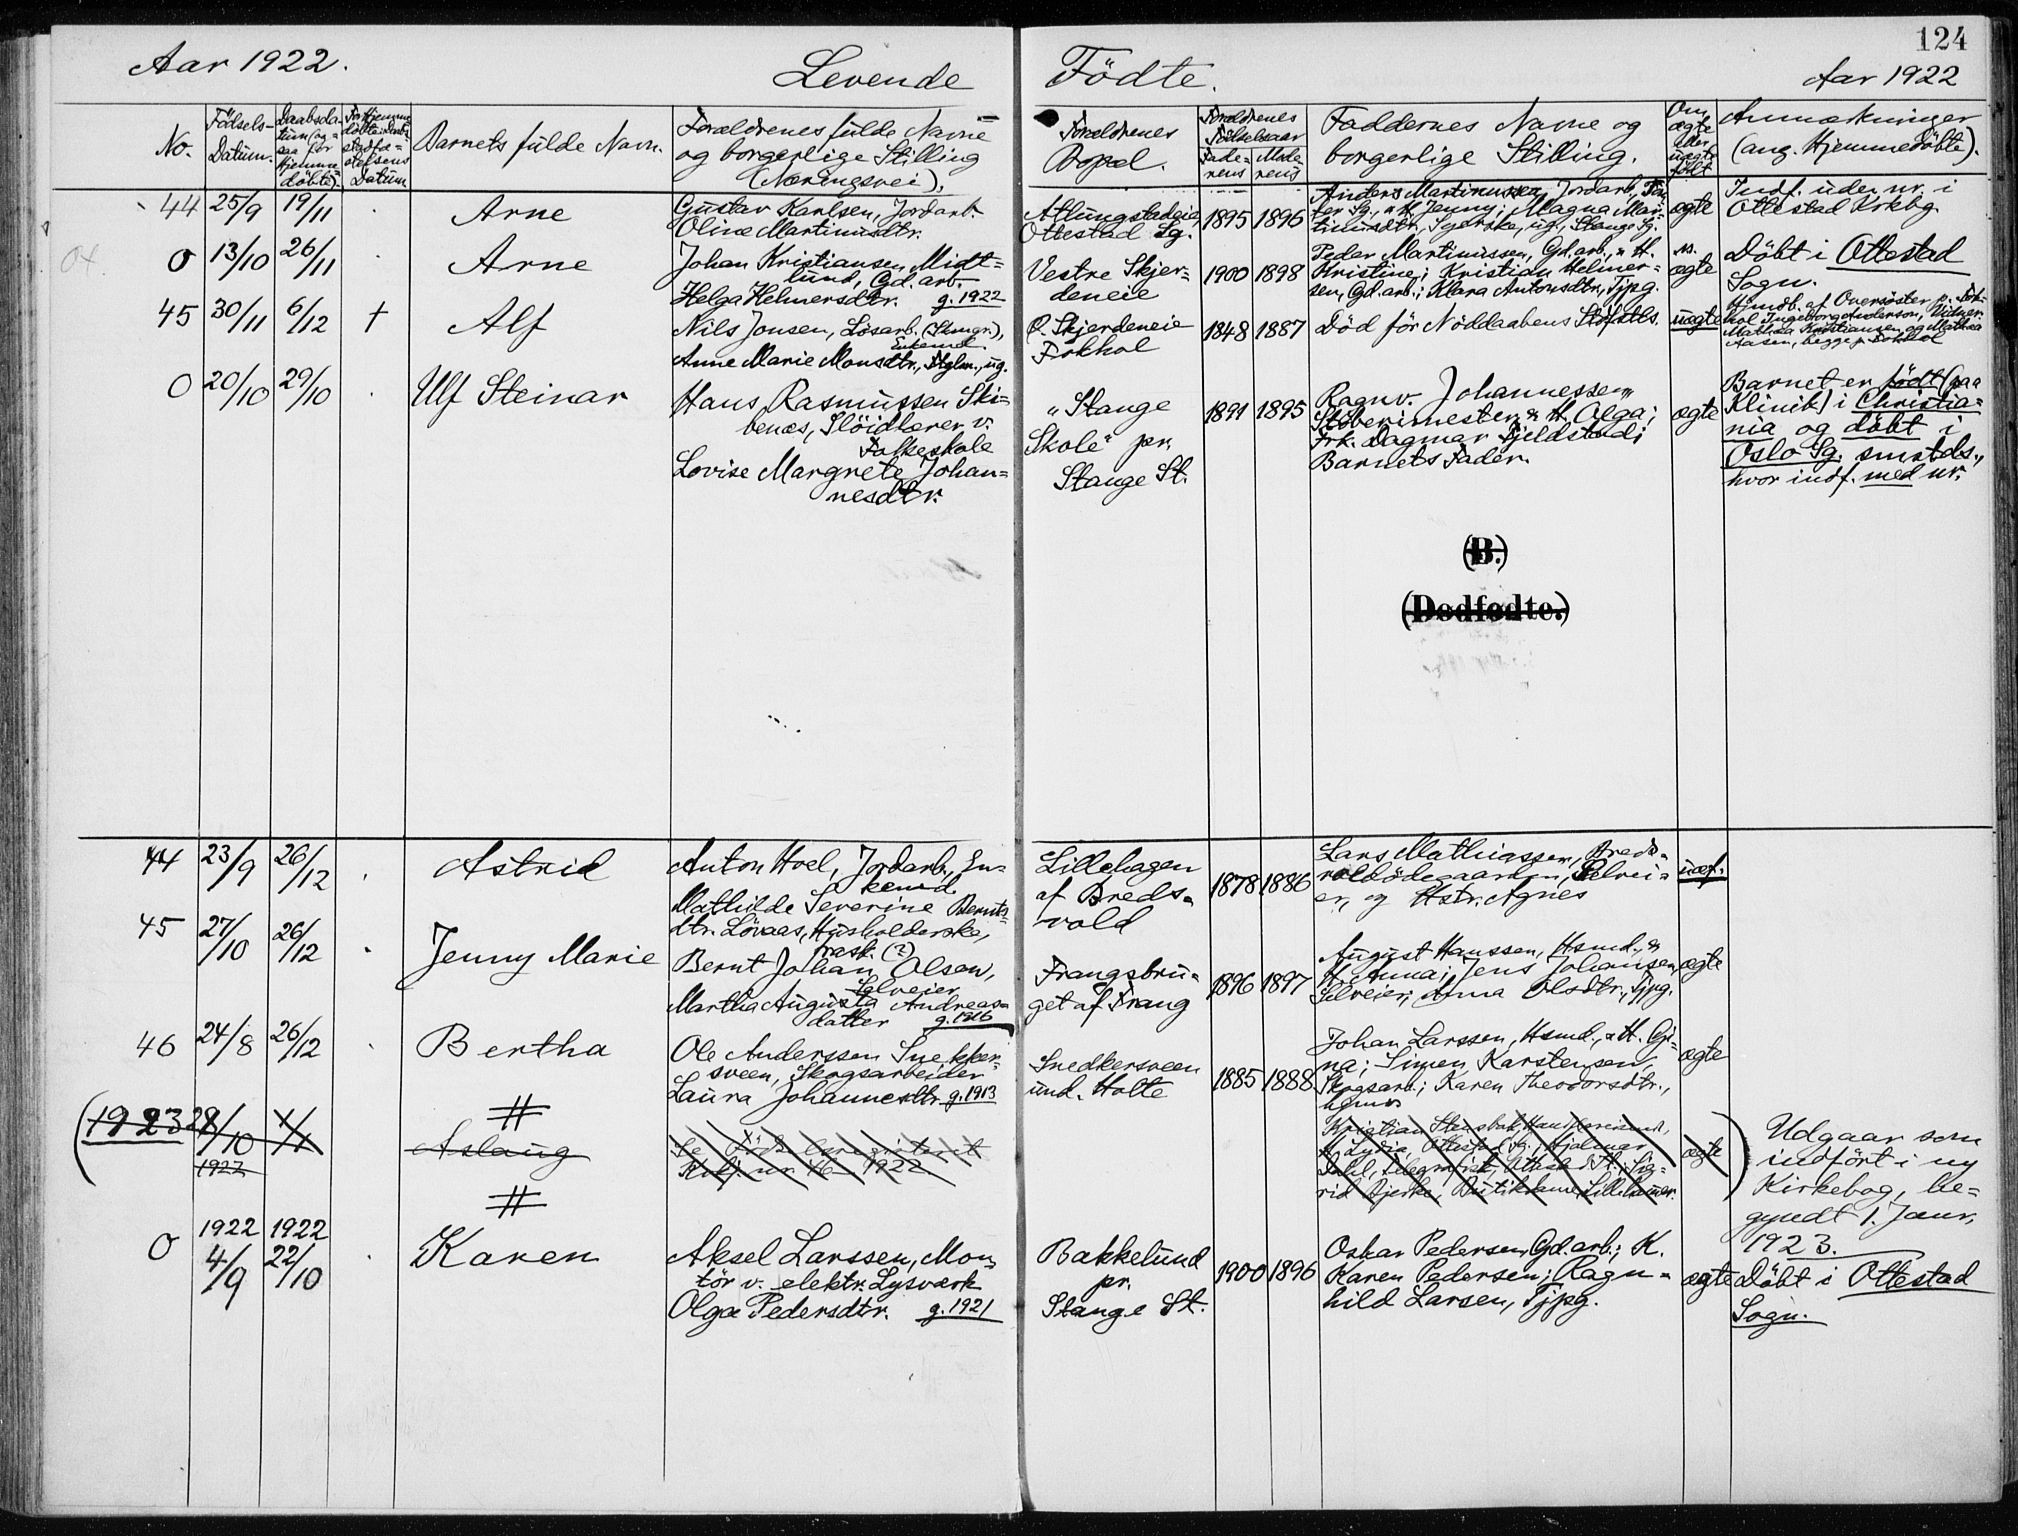 124
Aar 1922.
Levende
Födte.
Aar 1922
No.
Födsels-
Datum.
Daabsda-
tum (og
saa for
Hjemme
döbte).
Datum
Barnets fulde Navn.
Forældrenes fulde Navne
og borgerlige Stilling
(Næringsvei).
Forældrenes
Bopæl.
Forældrenes
Födselsaar
Fade-
rens
Mode-
rens
Faddernes Navne og
borgerlige Stilling.
Om
ægte
eller
uægte
födt
Anmærkninger
(ang. Hjemmedöbte).
44
25/9
19/11
Arne
Gustav Karlsen, Jordarb.
Oline Martinusdtr.
Atlungstadeie,
Ottestad Sg.
1895
1896
Anders Martinussen, Jordarb.,
Sg., & H. Jenny; Magna Mar-
tinusdtr., Syerske, ug., Stange Sg.
ægte
Indf. uden nr. i
Ottestad Krkbg.
04
0
13/10
26/11
Arne
Johan Kristiansen Midt-
lund, Gd. arb.
Helga Helmersdtr. g. 1922
Vestre Skjer-
deneie
1900
1898
Peder Martinussen, Gd. arb., & H.
Kristine; Kristian Helmer-
sen, Gd. arb.; Klara Antonsdtr., Tjpg.
ægte
Döbt i Ottestad
Sogn.
45
30/11
6/12
†
Alf
Nils Jonsen, Lösarb.
Enkemd.
Anne Marie Monsdtr., ug.
Ö. Skjerdeneie
Fokhol
1848
1887
Död för Nöddaabens Stdfstls.
uægte
Hjmdb. af Oversöster p. Fok-
hol Ingeborg Anderson, Vidner
Mathea Kristiansen og Mathea
Aasen, begge p. Fokhol
0
20/10
29/10
Ulf Steinar
Hans Rasmussen Ski-
benes, Slöidlærer v.
Folkeskole
Lovise Margrete Johan-
nesdtr.
"Stange
Skole" pr.
Stange St.
1891
1895
Ragnv. Johannessen,
Stöberimester, & H. Olga;
Frk. Dagmar Fjeldstad;
Barnets Fader.
ægte
Barnet er födt (paa
Klinik) i Christia-
nia og döbt i
Oslo Sg. smstds.,
hvor indf. med nr.
(B.)
(Dødfødte.)
44
23/9
26/12
Astrid
Anton Hoel, Jordarb., En-
kemd
Mathilde Severine Bernts-
dtr. Lövaas, Husholderske,
frask. (?)
Lillehagen
af Breds-
vold
1878
1886
Lars Mathiassen, Breds-
voldödegaarden, Selvei-
er, og Hstr. Agnes
uæf.
45
27/10
26/12
Jenny Marie
Bernt Johan Olsen,
Selveier
Martha Augusta Andreas-
datter g. 1916
Frangsbru-
get af Frang
1896
1897
August Hanssen, Hsmd., &
H. Anna; Jens Johansen,
Selveier; Anna Olsdtr., Tjpg.
ægte
46
24/8
26/12
Bertha
Ole Anderssen Snekker-
sveen, Skogsarbeider
Laura Johannesdtr. g. 1913
Snedkersveen
und. Holte
1885
1888
Johan Larssen, Hsmd., & H. Gi-
na; Simen Karstensen,
Skogsarb.; Karen Theodorsdtr.,
ægte
(1923
28/10
1922
#
Aslaug
Se
1922
Kristian Stensbak,
H. Lydia, Ottestad Sg.; Hjalmar
Dahl, Telegrafist, Ottestad St.; Sig-
rid Bjerke, Butikdame, Lillehamer.
ægte
)
Udgaar som
indfört i ny
Kirkebog, be-
gyndt 1. Janr.
1923.
#
0
1922
4/9
1922
22/10
Karen
Aksel Larssen, Mon-
tör v. elektr. Lysværk
Olga Pedersdtr. g. 1921
Bakkelund
pr.
Stange St.
1900
1896
Oskar Pedersen, Gd. arb.; K.
Karen Pedersen; Ragn-
hild Larsen, Tjpg.
ægte
Döbt i Ottestad
Sogn.